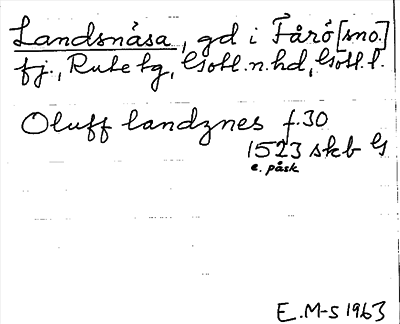 Landsnäsa, gd i Fårö [sno.]
fj., Rute tg, Gotl. n. hd, Gotl. l.
Oluff landznes f. 30
1523 skb G
e. påsk
E. M-s 1963